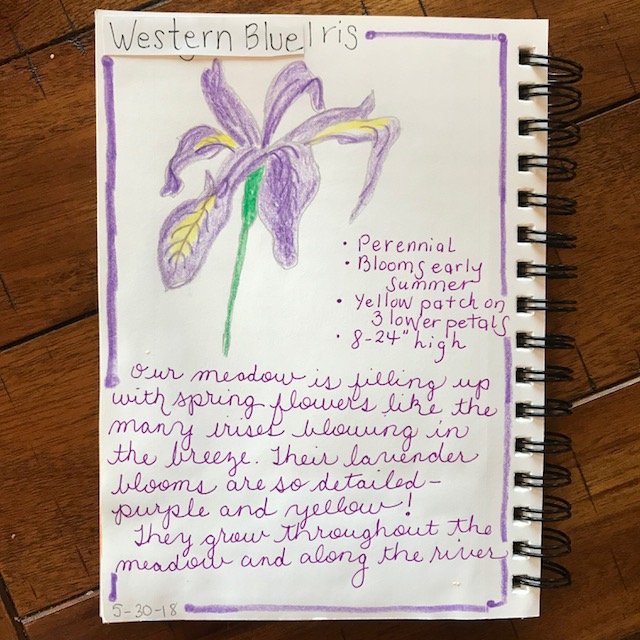 Western Blue Iris
• Perennial
• Blooms early
summer
• Yellow patch on
3 lower petals
• 8-24" high
Our meadow is filling up
with spring flowers like the
many irises blowing in
the breeze. Their lavender
blooms are so detailed-
purple and yellow!
They grow throughout the
meadow and along the river
5-30-18